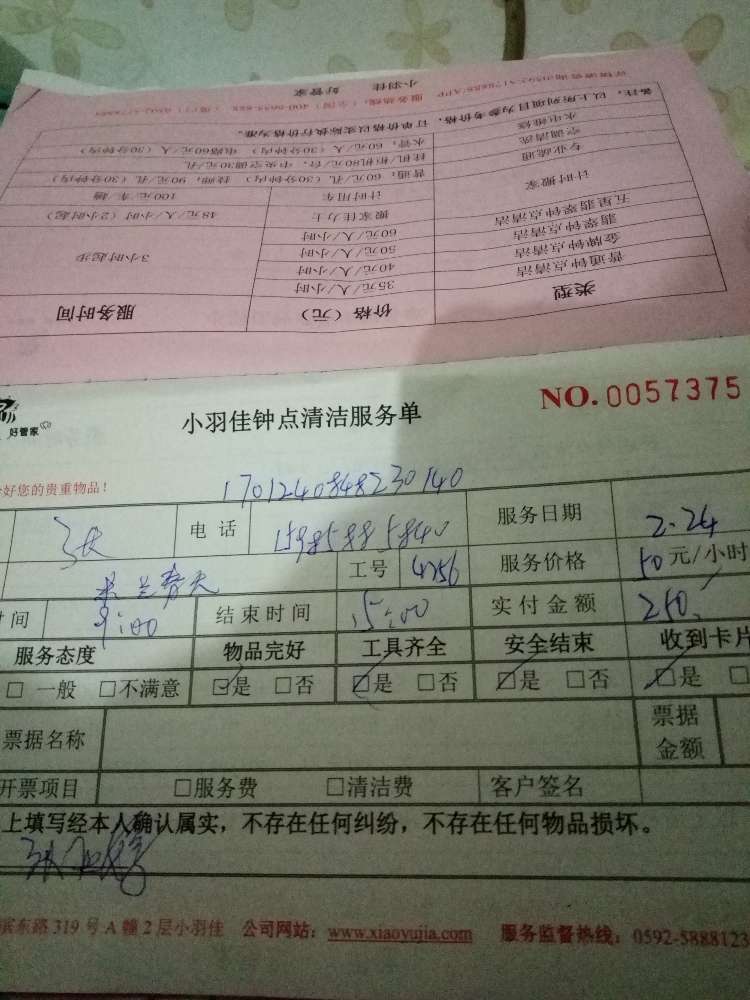 类型 价格（元） 服务时间
普通钟点清洁 35元/人/小时 3小时起步
金牌钟点清洁 40元/人/小时
翡翠钟点清洁 50元/人/小时
五星翡翠钟点清洁 60元/人/小时
计时搬家 搬家佳力士 48元/人/小时（2小时起）
计时用车 100元/车/趟
专业疏通 普通：60元/孔（30分钟内） 技师：90元/孔（30分钟）
空调清洗 挂机/柜机80元/台，中央空调30元/孔
水电维修 水管：60元/人（30分钟内） 电路60元/人（30分钟内）
备注：以上所列项目为参考价格，订单价格以实际执行价格为准。
小羽佳 好管家
好管家
小羽佳钟点清洁服务单
NO.0057375
好您的贵重物品！
1701240848230140
电话 15985885840 服务日期 2.24
工号 4256 服务价格 50元/小时
时间 9:00 结束时间 15:00 实付金额 250.
服务态度 物品完好 工具齐全 安全结束 收到卡片
□一般 □不满意 ☑是 □否 ☑是 □否 ☑是 □否 ☑是
票据名称 票据金额
开票项目 □服务费 □清洁费 客户签名
上填写经本人确认属实，不存在任何纠纷，不存在任何物品损坏。
滨东路319号A幢2层小羽佳 公司网站：www.xiaoyujia.com 服务监督热线：0592-5888123